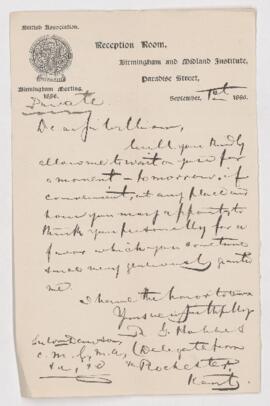 British Association.
Reception Room,
Birmingham and Midland Institute,
Paradise Street,
Birmingham Meeting.
1886.
September, 1st 1886.
Private
Dear Sir William,
Will you kindly
allow me to wait on you for
a moment - tomorrow, if
convenient, at any place and
hour you may appoint, to
thank you personally for a
favor which you some time
since very generously granted
me.
I have the honor to be
Yours very faithfully
Sir William Dawson,
C. M. G., M. A, (Delegate from
Rochester,
Kent)